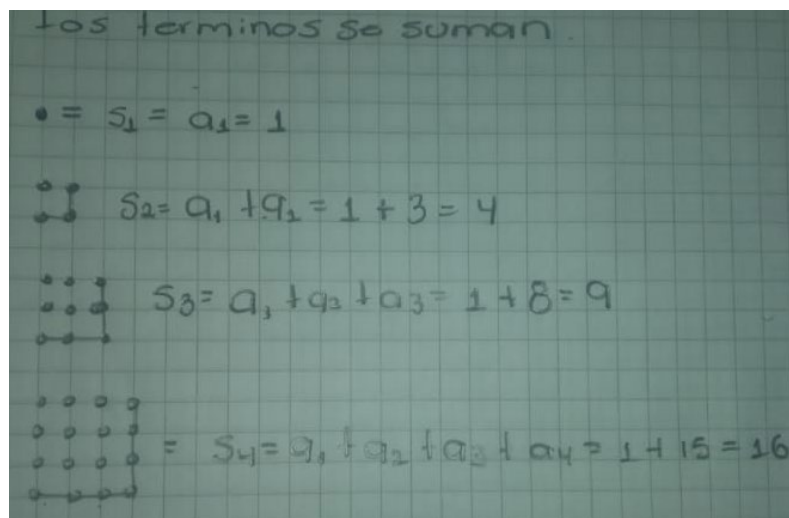 los terminos se suman.
= S₁ = a₁ = 1
S₂ = a₁ + a₂ = 1 + 3 = 4
S₃ = a₁ + a₂ + a₃ = 1 + 8 = 9
= S₄ = a₁ + a₂ + a₃ + a₄ = 1 + 15 = 16